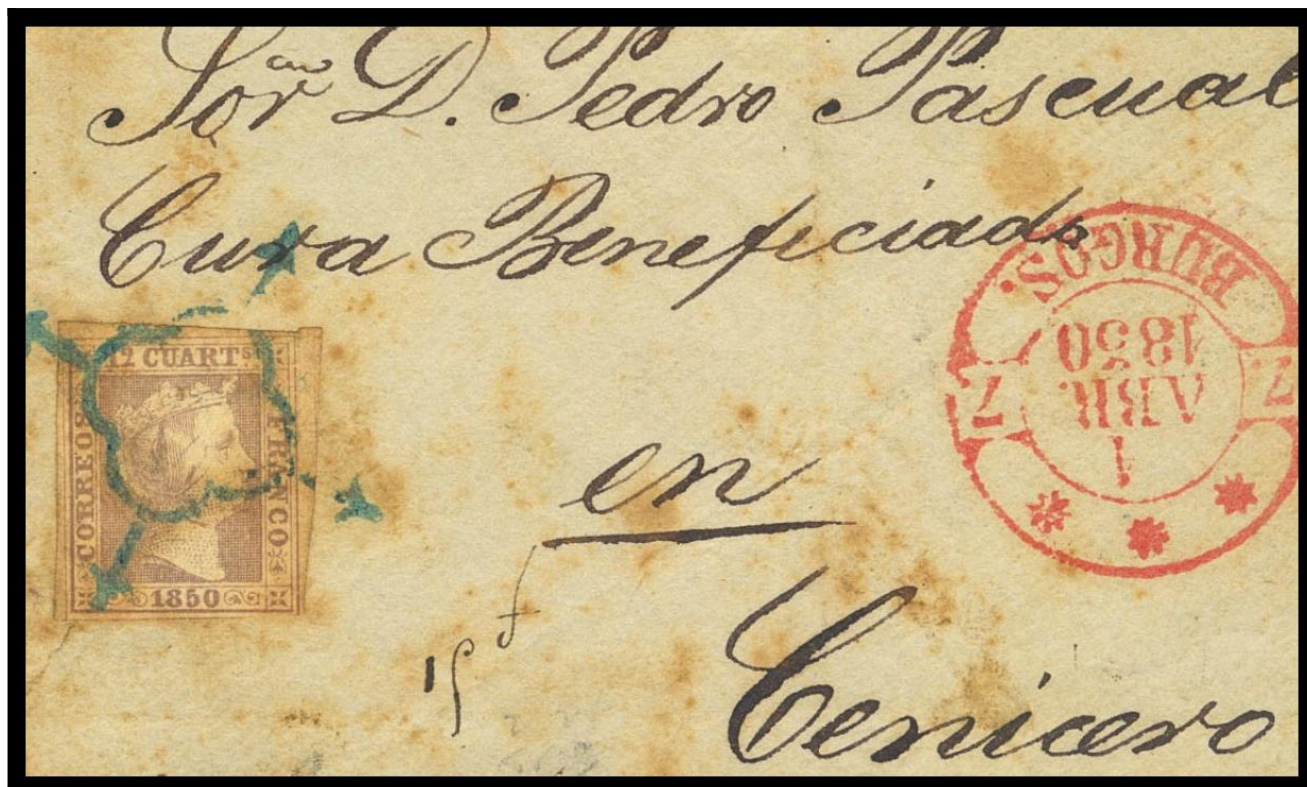 Sor D. Pedro Pascual
Cura Beneficiado
12 CUARTs
CORREOS
FRANCO
1850
BURGOS.
7
7
1
ABR.
1850
en
Cenicero